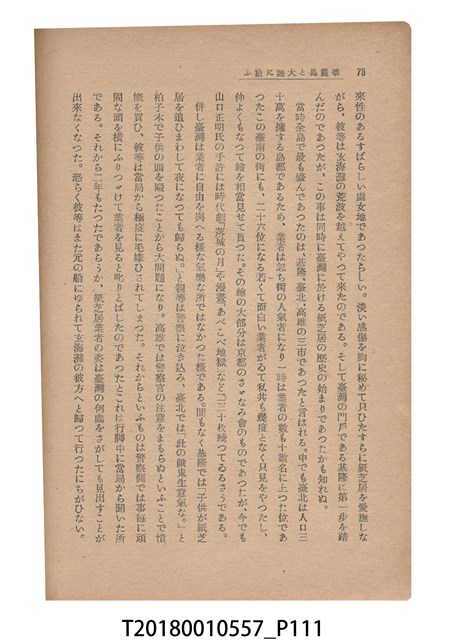 73 華麗島と大陸に拾ふ
來性のあるすばらしい處女地であつたらしい。淡い感傷を胸に秘めて只ひたすらに紙芝居を愛撫しな
がら、彼等は玄海灘の荒波を越えてやつて來たのである。そして臺灣の門戶である基隆に第一步を踏
んだのであつたが、この事は同時に臺灣に於ける紙芝居の歷史の始まりであつたかも知れぬ。
當時全島で最も盛んであつたのは、基隆、臺北、高雄の三市であつたと言はれる。中でも臺北は人口三
十萬を擁する島都であるため、業者は忽ち街の人氣者になり一時は業者の數も十數名に上つた位であ
つたこの臺南の街にも、二十六位になる若くて面白い業者がゐて私共も幾度となく只見をやつたし、
仲よくもなつて繪を相當見せて貰つた。その繪の大部分は京都のさゞなみ會のものであつたが、今でも
山口正明氏の手許には時代劇『落城の月』や漫畫『あべこべ地獄』など二三十枚殘つてゐるさうである。
併し臺灣は業者に自由を與へる樣な氣樂な所ではなかつた樣である。間もなく基隆では「子供が紙芝
居を追ひまわして夜になつても歸らぬ。」と親等は警察に泣き込み、臺北では、「此の餓鬼生意氣な。」と
柏子木で子供の頭を毆つたことから大問題になり。高雄では警察官の注意をまもらぬといふことで憤
慨を買ひ、彼等は當局から極度に毛嫌ひされてしまつた。それからといふものは警察側では事每に頑
固な頭を橫にふりつゞけて業者を見ると叱りとばしたのであつたとこれは行脚中に當局から聞いた所
である。それから二年もたつたであらうか、紙芝居業者の姿は臺灣の何處をさがしても見出すことが
出來なくなつた。恐らく彼等はまた元の船にゆられて玄海灘の彼方へと歸つて行つたにちがひない。
T20180010557_P111